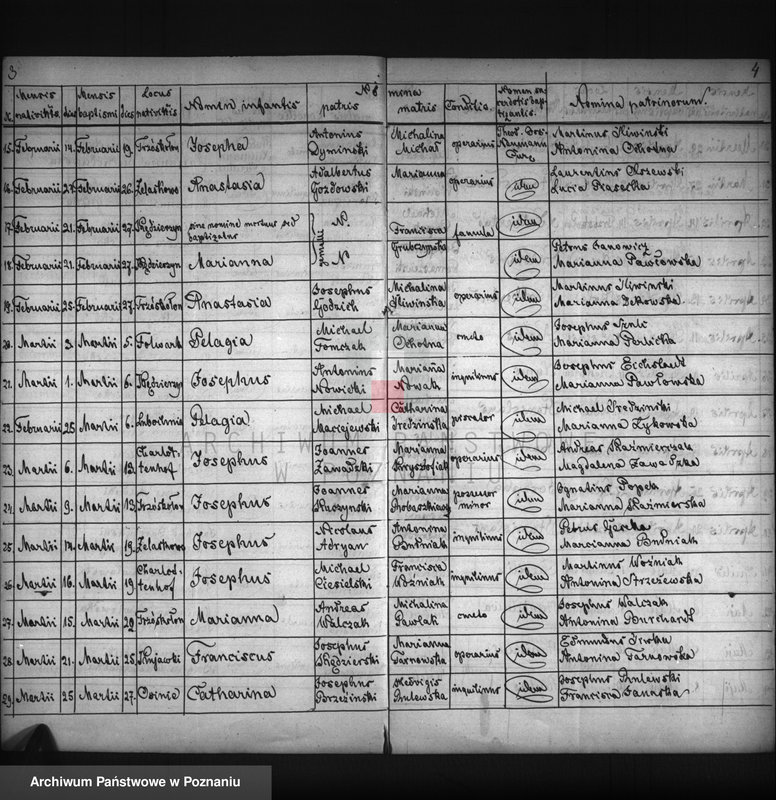 3
4
N. Mensis nativitatis dies Mensis baptismi dies Locus nativitatis Nomen infantis patris Nomina matris Conditio Nomen sacerdotis baptizantis. Nomina patrinorum.
15. Februarii 14. Februarii 19. Josepha Antonius Dyminski Michalina Michaś operarius Martinus Sliwinski Antonina Ochotna
16. Februarii 27. Februarii 26. Żelaskowo Anastasia Adalbertus Gozdowski Marianna operarius idem Laurentius Olszewski Lucia Piasecka
17. Februarii 21. Februarii 27. Kędzierzyn sine nomine mortuus sed baptizatur gemelli N. Francisca Grubczynska famula idem
18. Februarii 21. Februarii 27. Kędzierzyn Marianna N idem Petrus Janowicz Marianna Pawłowska
19. Februarii 25. Februarii 27. Anastasia Josephus Michalina Sliwinska operarius idem Martinus Sliwinski Marianna
20. Martii 3. Martii 5. Folwark Pelagia Michael Tomczak Marianna Ochotna cmeto idem Josephus Marianna
21. Martii 1. Martii 6. Kędzierzyn Josephus Antonius Nowicki Marianna Nowak inquilinus idem Josephus Eichstaedt Marianna Pawłowska
22. Februarii 25 Martii 6. Pelagia Michael Maciejewski Catharina Sredzinska idem Michael Sredzinski Marianna Zykowska
ARCHIWUM PAŃSTWOWE
W POZNANIU
23. Martii 6. Martii 13. Charlottenhof Josephus Joannes Zawadzki Marianna Krysztofiak operarius idem Andreas Kaźmierczak Magdalena Zawadzka
24. Martii 9. Martii 13. Josephus Joannes Ruczynski Marianna minor idem Ignatius Popek Marianna Kaźmierska
25. Martii 14. Martii 19. Żelaskowo Josephus Nicolaus Adryan Antonina inquilinus idem Petrus Marianna
26. Martii 16. Martii 19. Charlottenhof Josephus Michael Ciesielski Francisca Woźniak inquilinus idem Martinus Woźniak Antonina Strzeżewska
27. Martii 15. Martii 29. Marianna Andreas Walczak Michalina Pawlak cmeto idem Josephus Walczak Antonina Burchardt
28. Martii 21. Martii 25. Kujawki Franciscus Josephus Kędzierski Marianna Tarnowska operarius idem Edmundus Antonina Tarnowska
29. Martii 25 Martii 27. Catharina Josephus Brzeźinski Hedvigis inquilinus idem Josephus Francisca
Archiwum Państwowe w Poznaniu